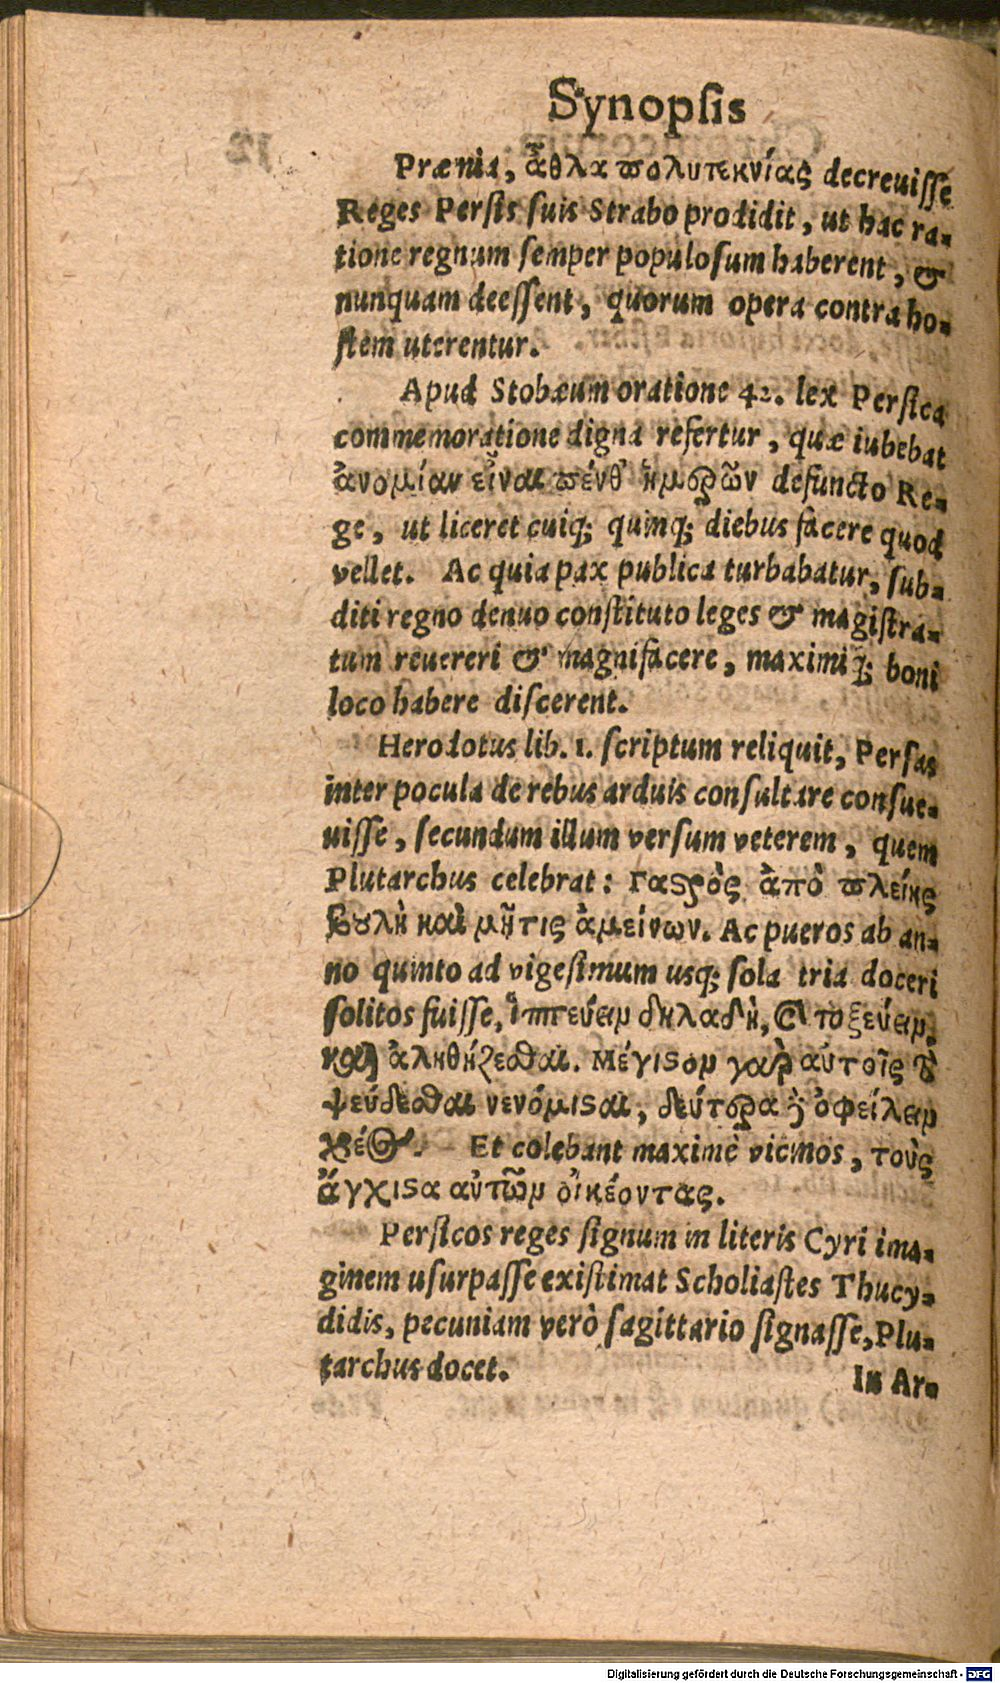 Synopsis
Prænia, ἆθλα πολυτεκνίας decreuisse
Reges Persis suis Strabo prodidit, ut hac ra-
tione regnum semper populosum haberent, &
nunquam deessent, quorum opera contra ho-
stem uterentur.
Apud Stobæum oratione 42. lex Persica
commemoratione digna refertur, quæ iubebat
ἀνομίαν εἶναι πένθ' ἡμερῶν defuncto Re-
ge, ut liceret cuiq; quinq; diebus facere quod
vellet. Ac quia pax publica turbabatur, sub-
diti regno denuo constituto leges & magistra-
tum reuereri & magnifacere, maximiq; boni
loco habere discerent.
Herodotus lib. 1. scriptum reliquit, Persas
inter pocula de rebus arduis consultare consue-
uisse, secundum illum versum veterem, quem
Plutarchus celebrat: Γαςρὸς ἀπὸ πλείης
βουλὴ καὶ μῆτις ἀμείνων. Ac pueros ab an-
no quinto ad vigesimum usq; sola tria doceri
solitos fuisse, ἱππεύειν δηλαδὴ, καὶ τοξεύειν,
καὶ ἀληθίζεσθαι. Μέγιςον γὰρ αὐτοῖς τὸ
ψεύδεσθαι νενόμιςαι, δεύτερα δὲ ὀφείλειν
χρέος. Et colebant maximè vicinos, τοὺς
ἄγχιςα αὐτῶν οἰκέοντας.
Persicos reges signum in literis Cyri ima-
ginem usurpasse existimat Scholiastes Thucy-
didis, pecuniam verò sagittario signasse, Plu-
tarchus docet.
In Ar-
Digitalisierung gefördert durch die Deutsche Forschungsgemeinschaft - DFG